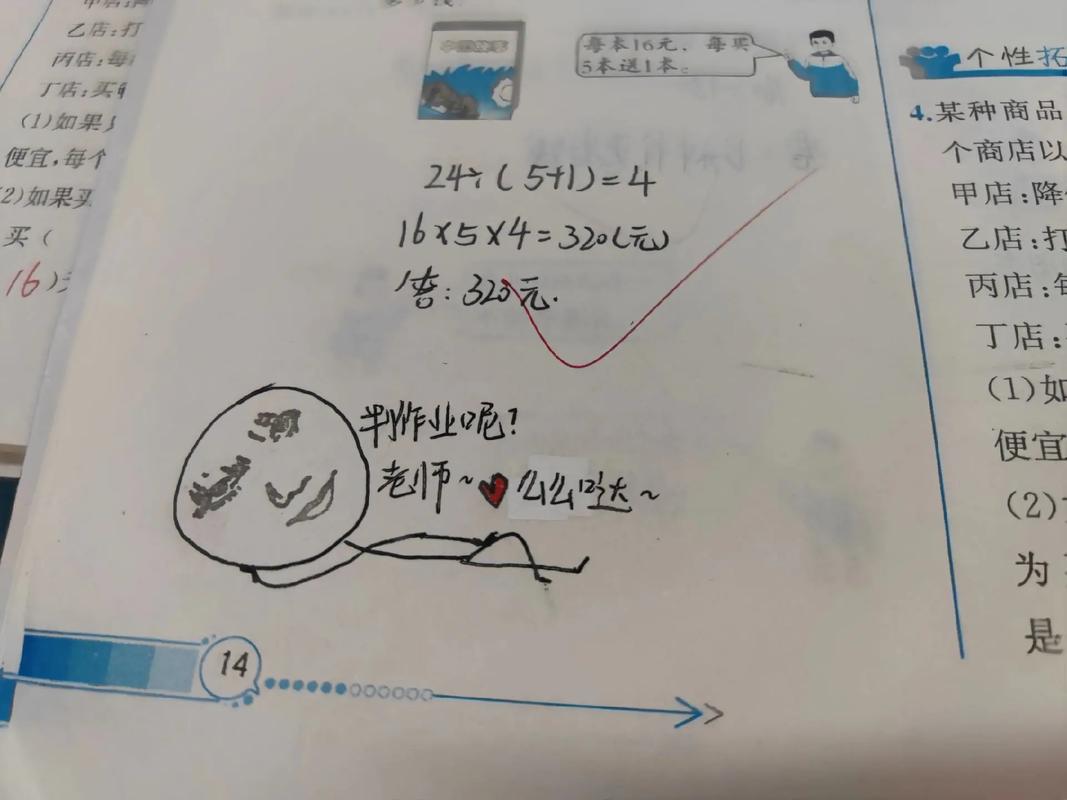 乙店:打
丙店:每
丁店:买
(1)如果
便宜,每个
2)如果买
买(
16)
每本16元,每买
5本送1本。
24÷(5+1)=4
16×5×4=320(元)
答:320元.
判作业呢?
老师~♥么么哒~
14
个性拓
4.某种商品
个商店以
甲店:降
乙店:打
丙店:每
丁店:
(1)如
便宜
(2)
为
是